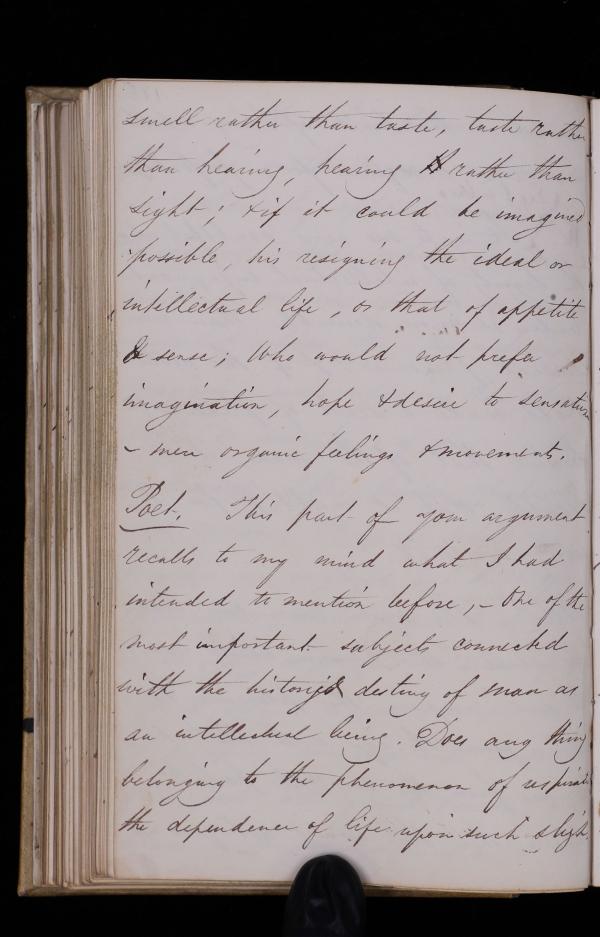 smell rather than taste, taste rather
than hearing, hearing rather than
sight; & if it could be imagined
possible, his resigning the ideal or
intellectual life, or that of appetite
& sense; Who would not prefer
imagination, hope & desire to sensation
- mere organic feelings & movements.
Poet. This part of your argument
recalls to my mind what I had
intended to mention before, - One of the
most important subjects connected
with the history & destiny of man as
an intellectual being. Does any thing
belonging to the phenomenon of respirati
the dependence of life upon such sligh